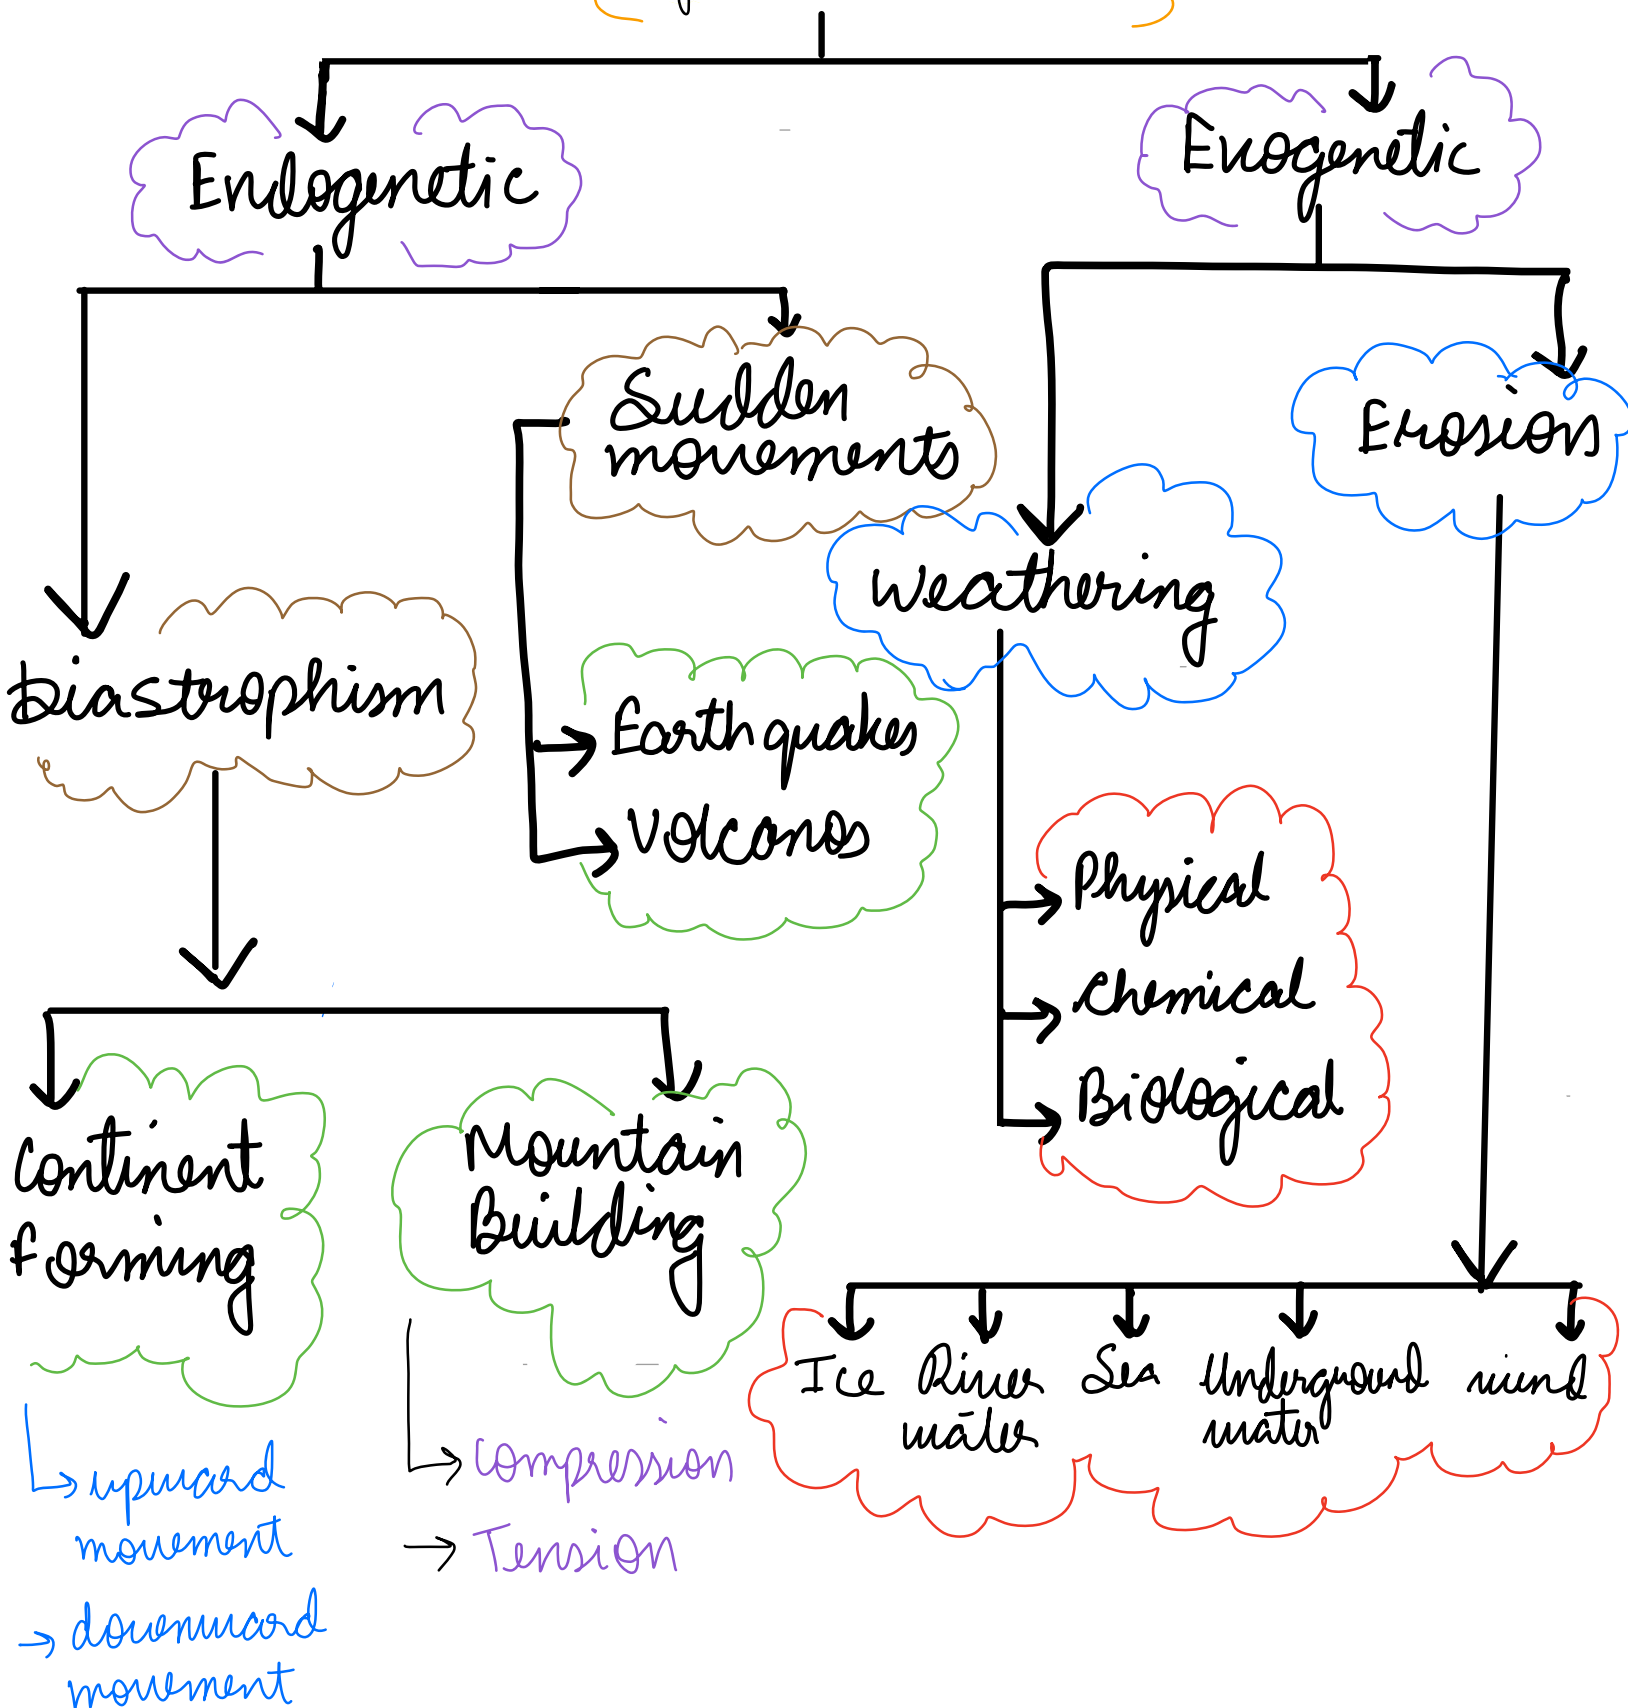 Endogenetic
Exogenetic
Sudden
movements
Erosion
Weathering
Diastrophism
Earthquakes
Volcanos
Physical
Chemical
Biological
Continent
forming
Mountain
Building
Ice
River
water
Sea
Underground
water
wind
upward
movement
downward
movement
Compression
Tension